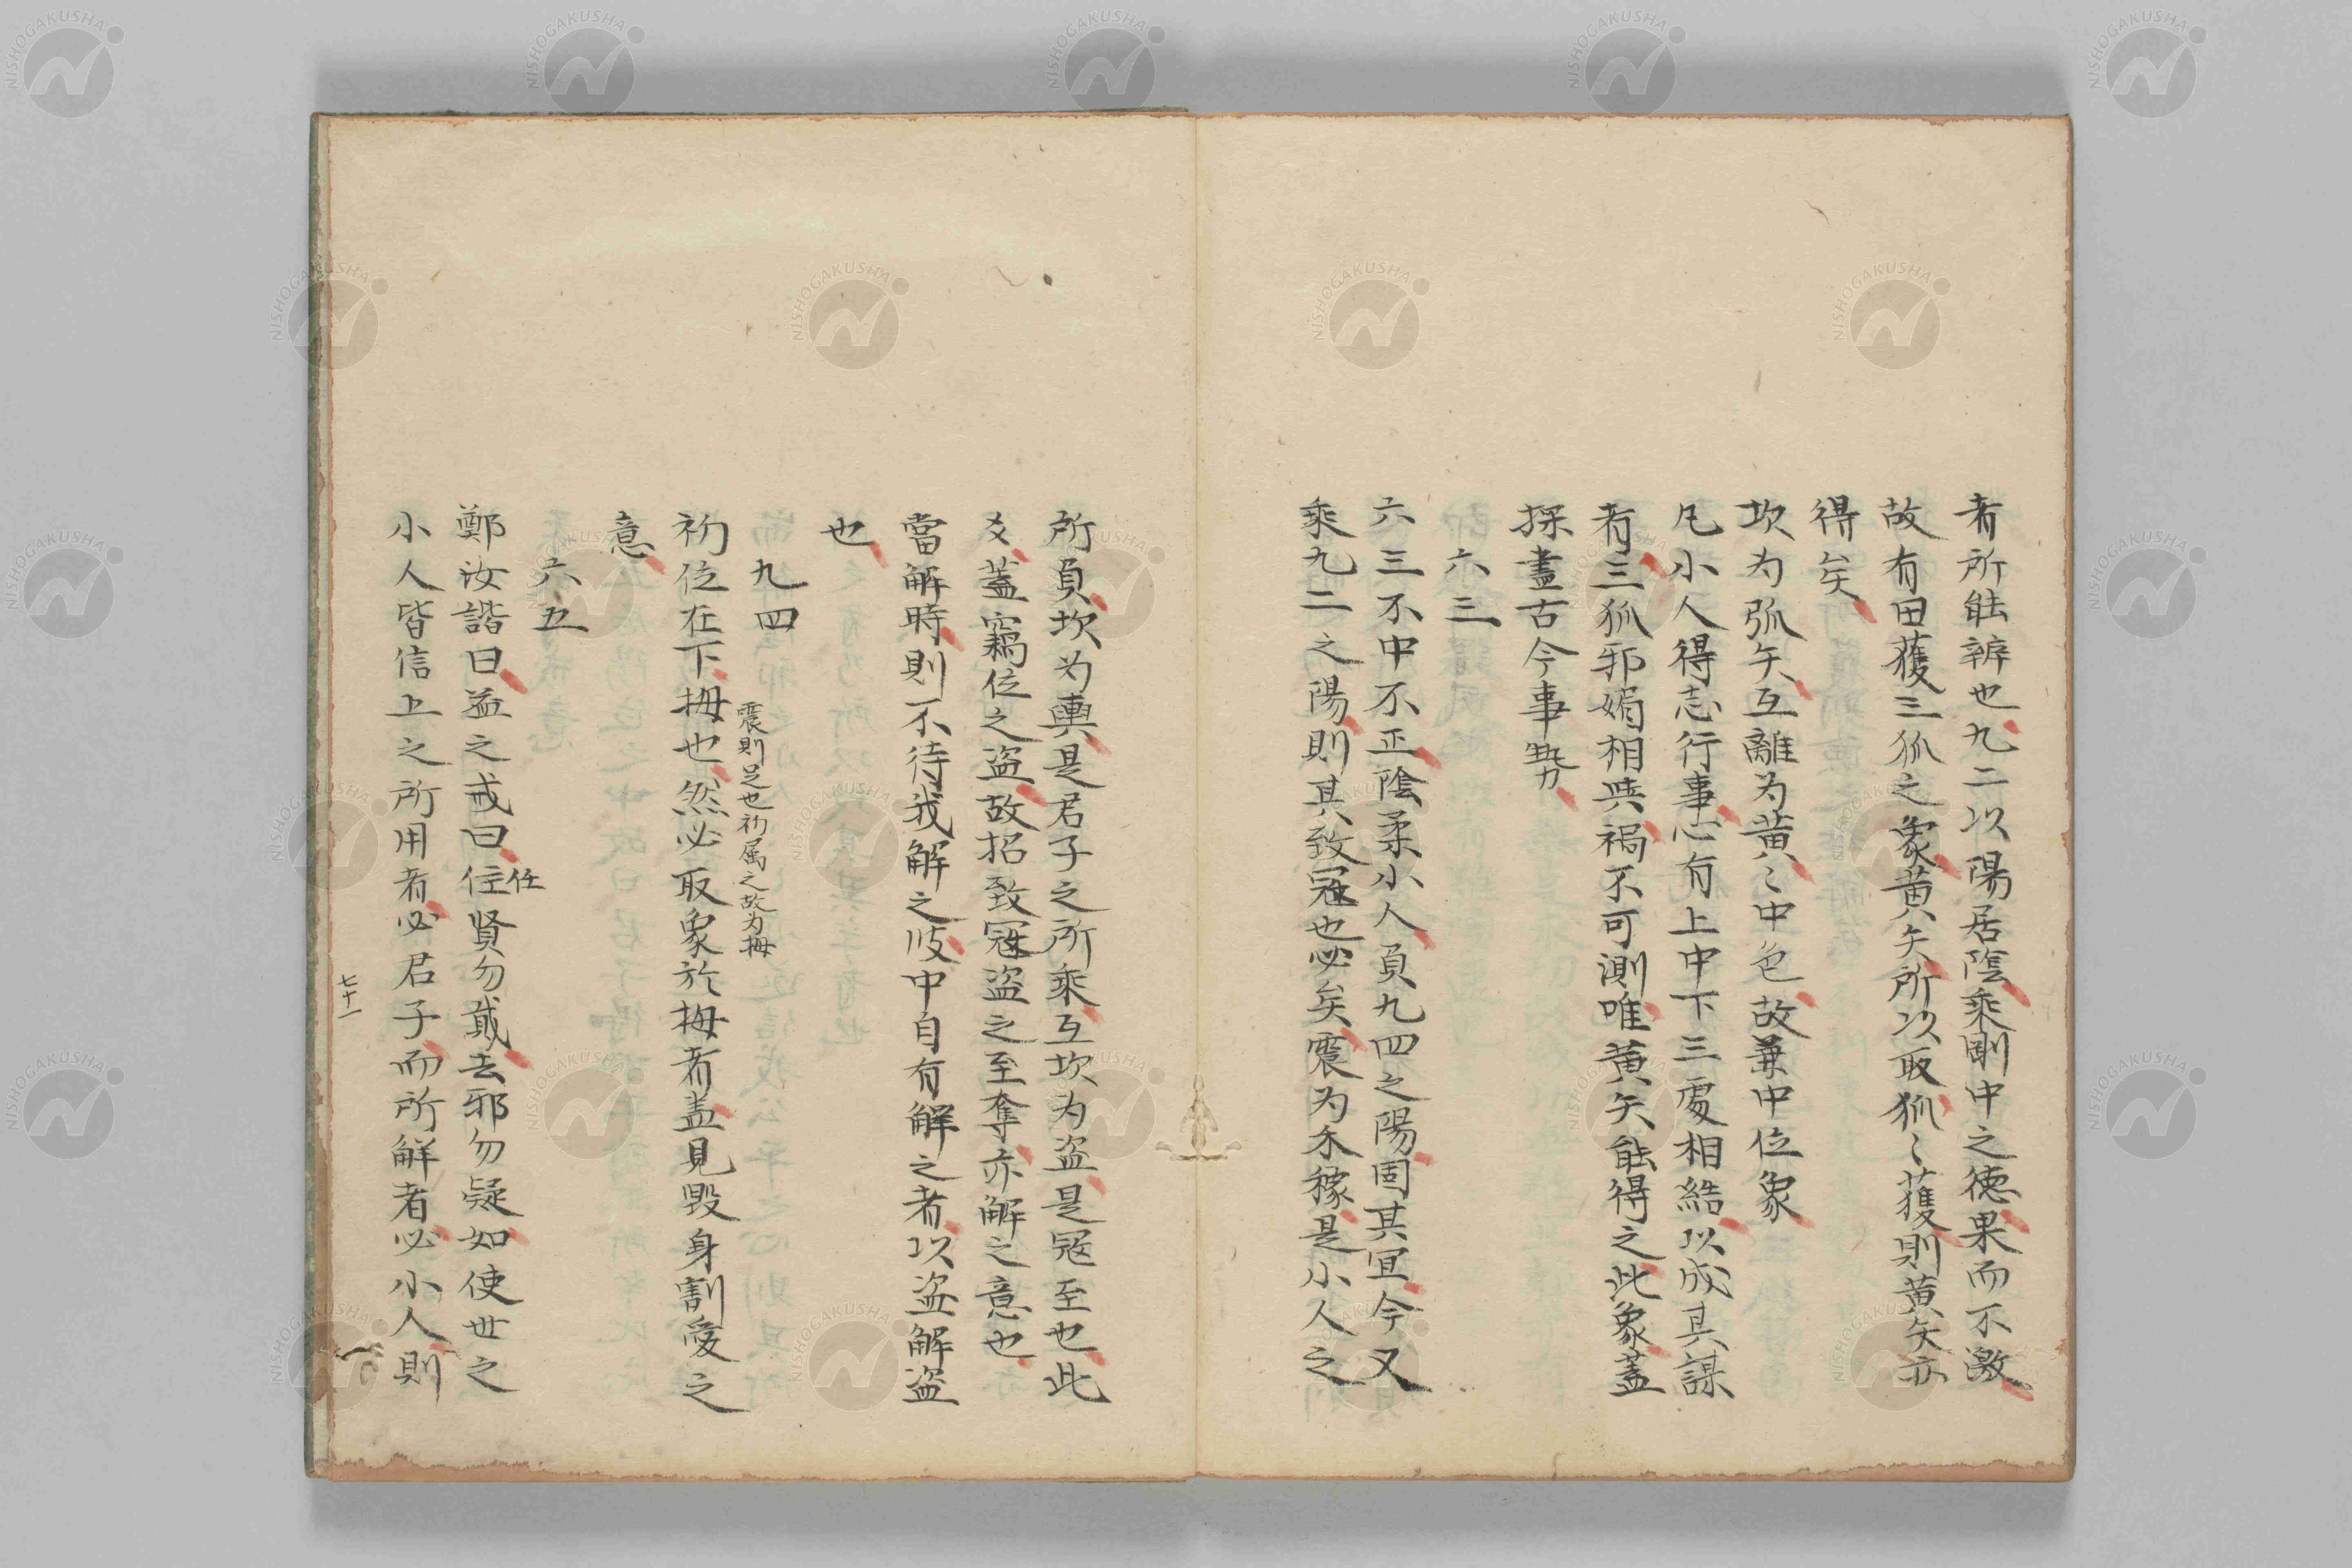 者所能辨也九二以陽居陰乘剛中之德果而不激
故有田獲三狐之象黄矢所以取狐〻獲則黄矢亦
得矣
坎为弧矢互離为黄〻中色故兼中位象
凡小人得志行事心有上中下三處相結以成其謀
者三狐邪媚相與禍不可測唯黄矢能得之此象蓋
探盡古今事勢
六三
六三不中不正陰柔小人負九四之陽固其宜今又
乘九二之陽則其致寇也必矣震为禾稼是小人之
所負坎为輿是君子之所乘互坎为盗是寇至也此
爻蓋竊位之盗故招致寇盗之至奪亦解之意也
當解時則不待我解之彼中自有解之者以盗解盗
也
九四
震則足也初属之故为拇
初位在下拇也然必取象於拇者盖見毀身割愛之
意
六五
任
鄭汝諧曰益之戒曰任贤勿貳去邪勿疑如使世之
小人皆信上之所用者必君子而所解者必小人則
七十一
NISHOGAKUSHA